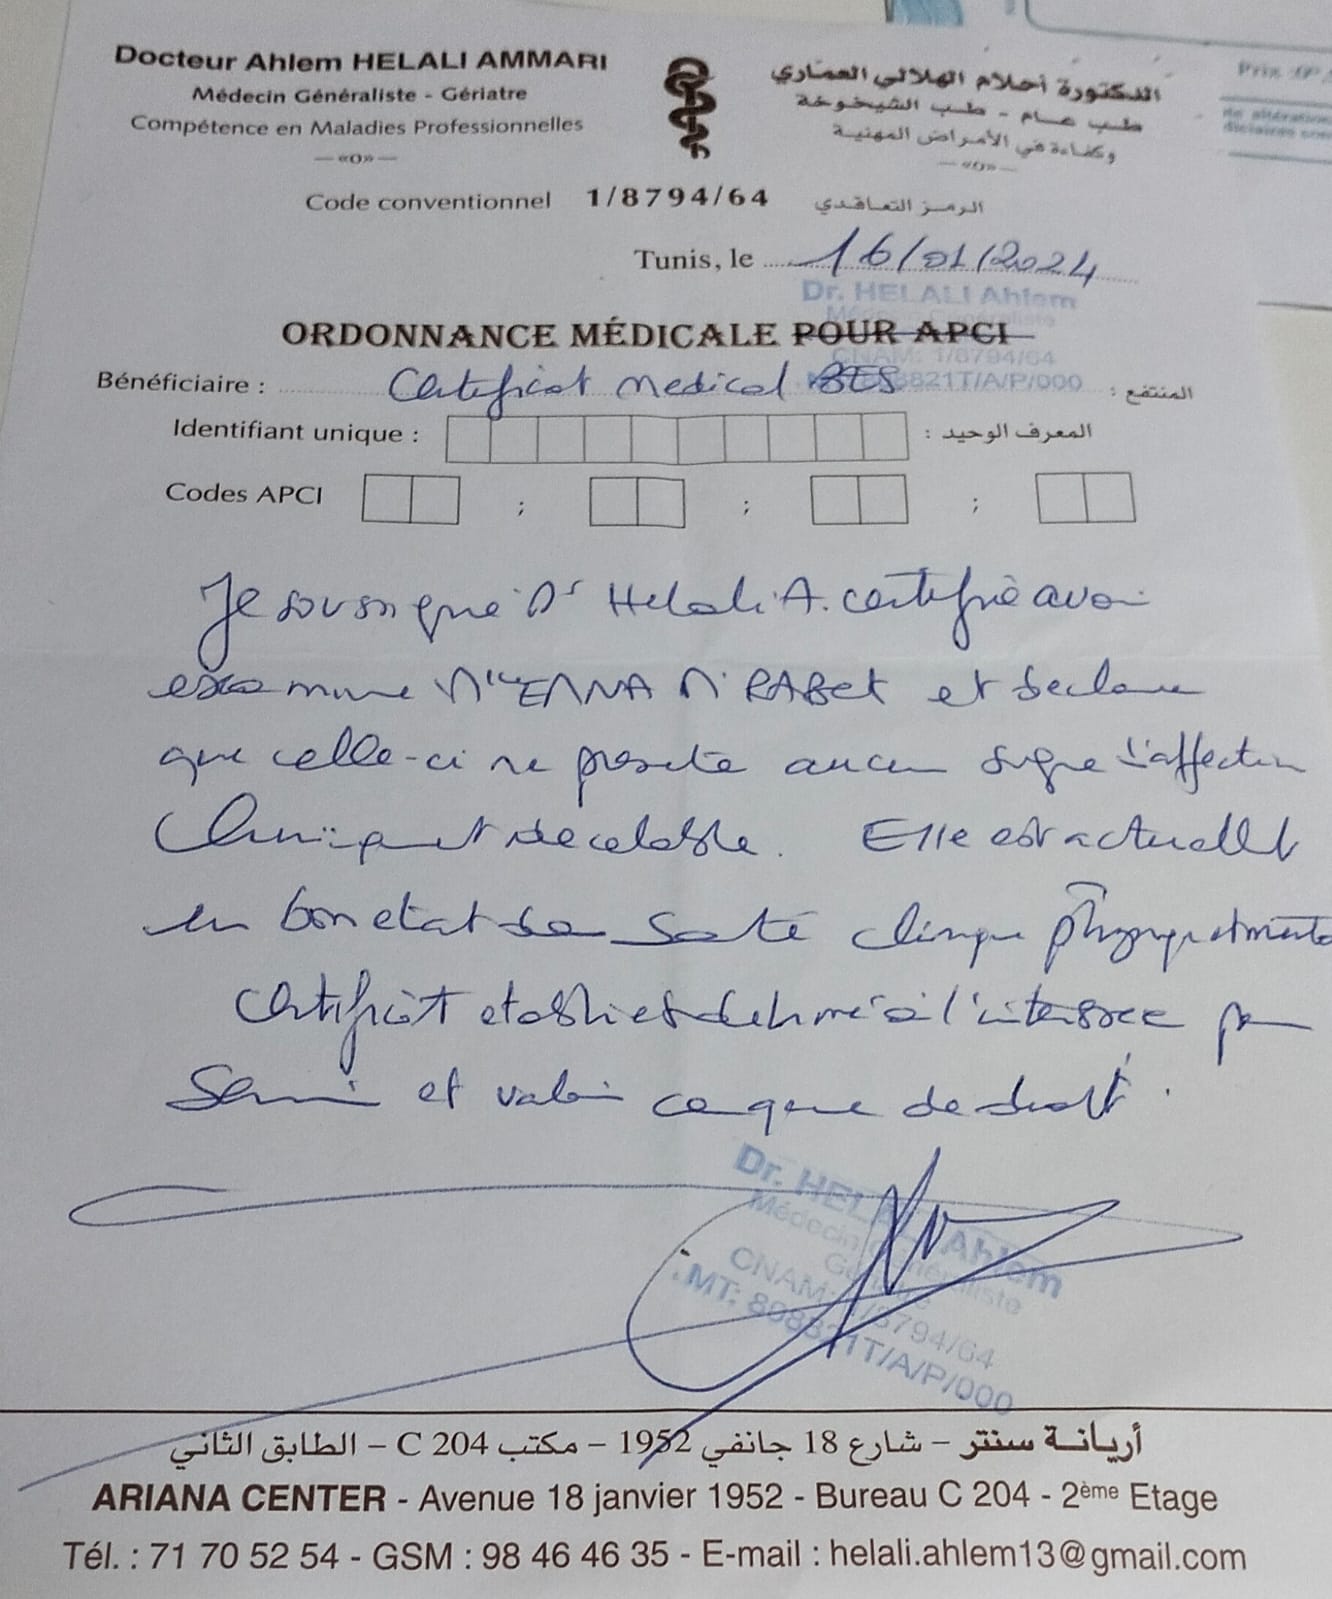 Docteur Ahlem HELALI AMMARI
Médecin Généraliste - Gériatre
Compétence en Maladies Professionnelles
—«O»—
الدكتورة أحلام الهلالي العماري
طب عام - طب الشيخوخة
وكفاءة في الأمراض المهنية
—«O»—
Code conventionnel 1/8794/64 الرمز التعاقدي
Tunis, le 16/01/2024
Dr. HELALI Ahlem
Médecin Généraliste
CNAM: 1/8794/64
ORDONNANCE MÉDICALE POUR APCI
Bénéficiaire : Certificat medical 8821T/A/P/000 : المنتفع
Identifiant unique : : المعرف الوحيد
Codes APCI ; ; ;
Je soussigné Dr Helali A. certifie avoir
examiné Mlle MRABET et declare
que celle-ci ne presente aucun signe d'affection
cliniquement decelable. Elle est actuellet
en bon etat de santé clinique
Certificat etabli et delivré à l'interessee pour
Servir et valoir ce que de droit.
Dr. HELALI Ahlem
Médecin Généraliste
Gériatre
CNAM: 1/8794/64
MT: 808821T/A/P/000
أريانة سنتر – شارع 18 جانفي 1952 – مكتب C 204 – الطابق الثاني
ARIANA CENTER - Avenue 18 janvier 1952 - Bureau C 204 - 2ème Etage
Tél. : 71 70 52 54 - GSM : 98 46 46 35 - E-mail : helali.ahlem13@gmail.com